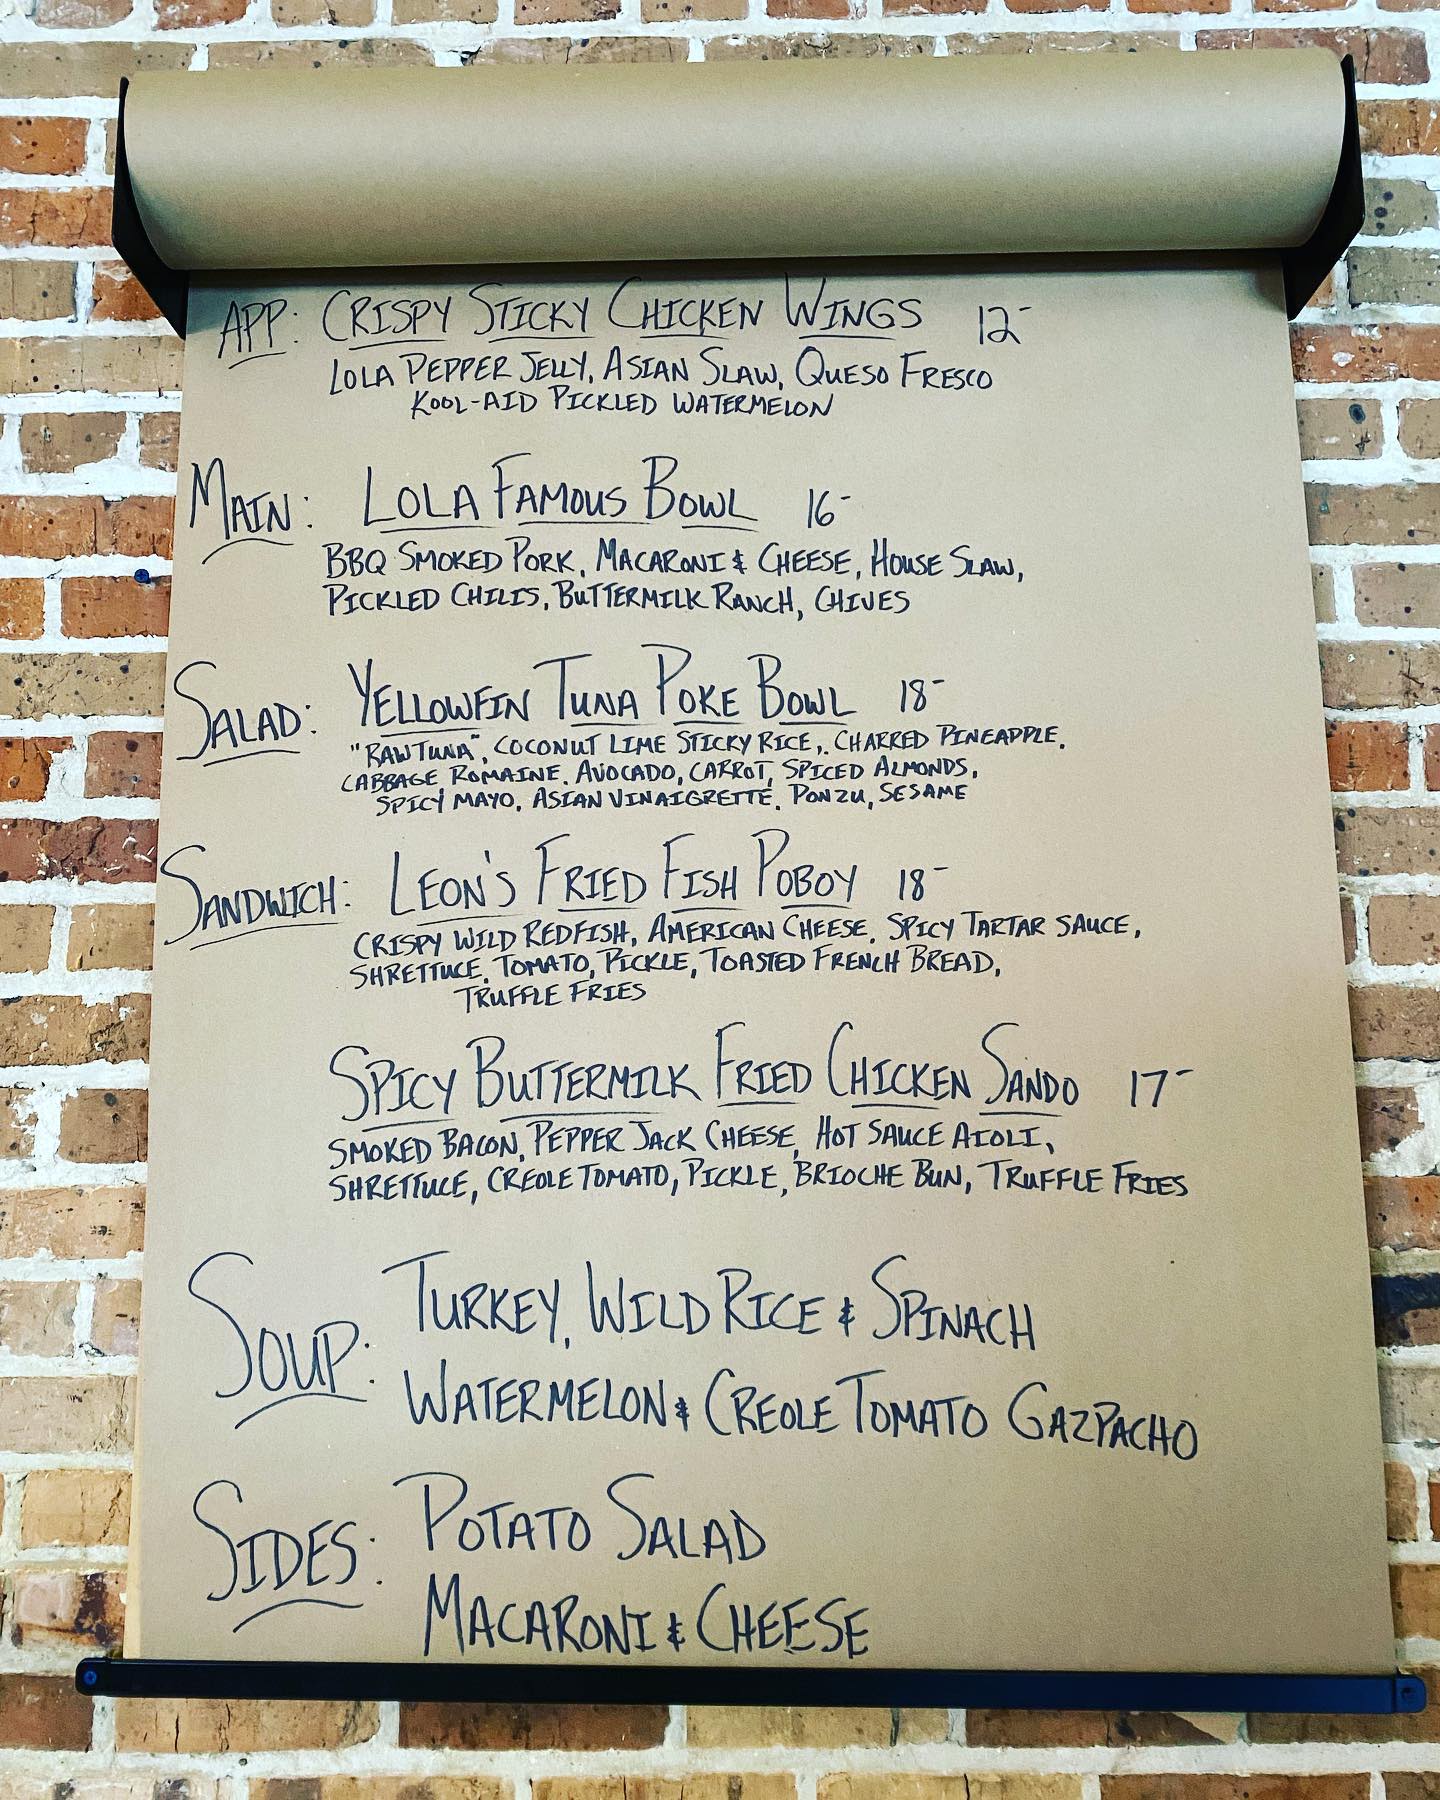 APP: CRISPY STICKY CHICKEN WINGS 12-
LOLA PEPPER JELLY, ASIAN SLAW, QUESO FRESCO
KOOL-AID PICKLED WATERMELON
MAIN: LOLA FAMOUS BOWL 16-
BBQ SMOKED PORK, MACARONI & CHEESE, HOUSE SLAW,
PICKLED CHILIS, BUTTERMILK RANCH, CHIVES
SALAD: YELLOWFIN TUNA POKE BOWL 18-
"RAW TUNA", COCONUT LIME STICKY RICE, CHARRED PINEAPPLE,
CABBAGE ROMAINE, AVOCADO, CARROT, SPICED ALMONDS,
SPICY MAYO, ASIAN VINAIGRETTE, PONZU, SESAME
SANDWICH: LEON'S FRIED FISH POBOY 18-
CRISPY WILD REDFISH, AMERICAN CHEESE, SPICY TARTAR SAUCE,
SHRETTUCE, TOMATO, PICKLE, TOASTED FRENCH BREAD,
TRUFFLE FRIES
SPICY BUTTERMILK FRIED CHICKEN SANDO 17-
SMOKED BACON, PEPPER JACK CHEESE, HOT SAUCE AIOLI,
SHRETTUCE, CREOLE TOMATO, PICKLE, BRIOCHE BUN, TRUFFLE FRIES
SOUP: TURKEY, WILD RICE & SPINACH
WATERMELON & CREOLE TOMATO GAZPACHO
SIDES: POTATO SALAD
MACARONI & CHEESE